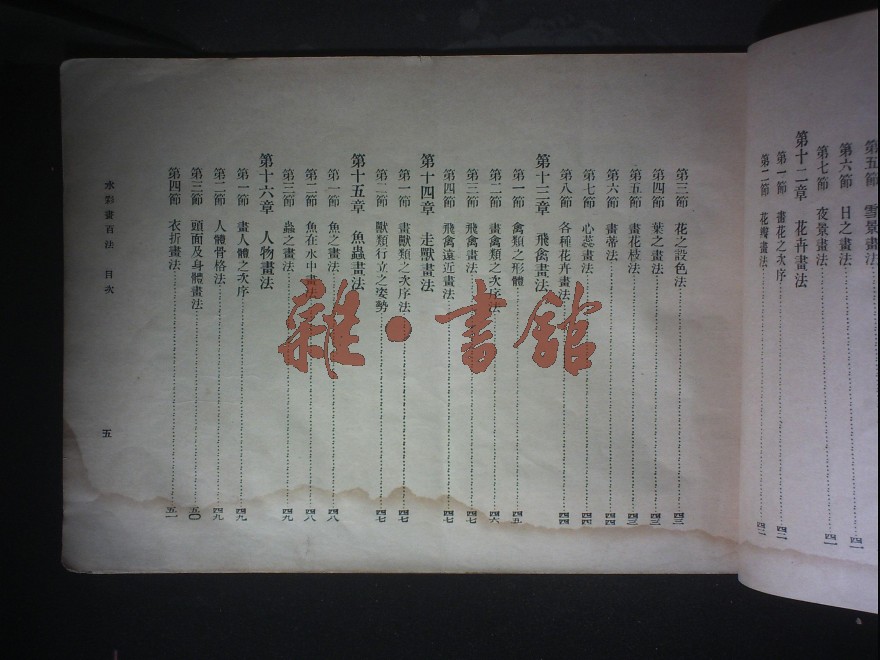 第五節 雪景畫法
第六節 日之畫法 四一
第七節 夜景畫法 四一
第十二章 花卉畫法
第一節 畫花之次序 四二
第二節 花瓣畫法 四二
第三節 花之設色法 四三
第四節 葉之畫法 四三
第五節 畫花枝法 四三
第六節 畫蒂法 四四
第七節 心蕊畫法 四四
第八節 各種花卉畫法 四四
第十三章 飛禽畫法
第一節 禽類之形體 四五
第二節 畫禽類之次序法 四六
第三節 飛禽畫法 四七
第四節 飛禽遠近畫法 四七
第十四章 走獸畫法
第一節 畫獸類之次序法 四七
第二節 獸類行立之姿勢 四七
第十五章 魚蟲畫法
第一節 魚之畫法 四八
第二節 魚在水中畫法 四八
第三節 蟲之畫法 四九
第十六章 人物畫法
第一節 畫人體之次序 四九
第二節 人體骨格法 四九
第三節 頭面及身體畫法 五〇
第四節 衣折畫法 五一
水彩畫百法 目次 五
雜·書館